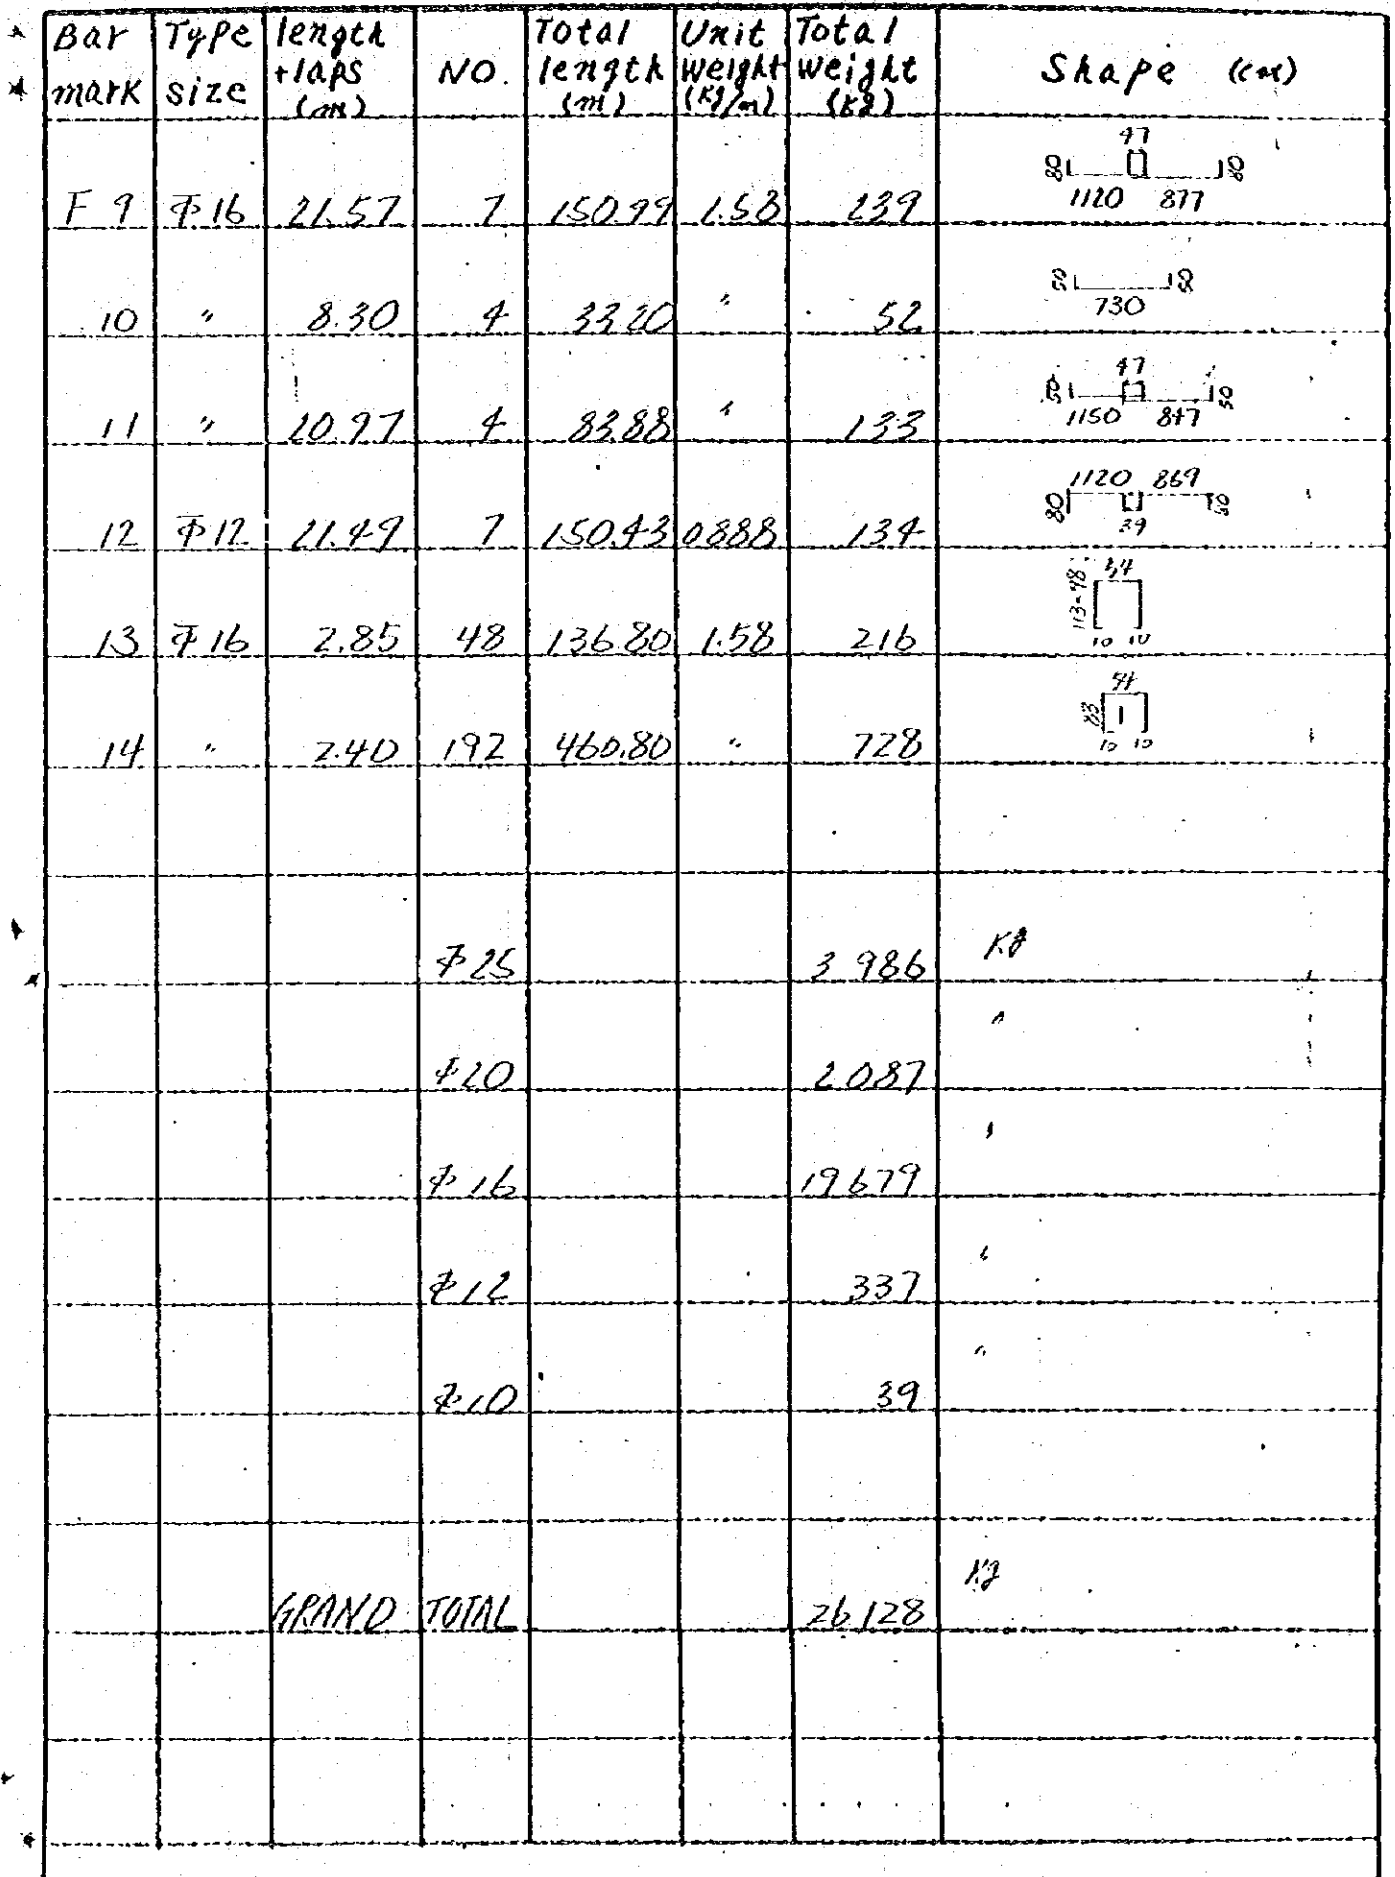 Bar mark | Type size | length +laps (m) | NO. | Total length (m) | Unit weight (kg/m) | Total weight (kg) | Shape (cm)
F 9 | Φ16 | 21.57 | 7 | 150.99 | 1.58 | 239 | 80 1120 47 877 80
10 | " | 8.30 | 4 | 33.20 | " | 52 | 50 730 50
11 | " | 20.97 | 4 | 83.88 | " | 133 | 50 1150 47 847 50
12 | Φ12 | 21.49 | 7 | 150.43 | 0.888 | 134 | 80 1120 39 869 80
13 | Φ16 | 2.85 | 48 | 136.80 | 1.58 | 216 | 113-98 54 10 10
14 | " | 2.40 | 192 | 460.80 | " | 728 | 83 54 10 10
Φ25 | 3 986 | Kg
Φ20 | 2 087 | "
Φ16 | 19 679 | "
Φ12 | 337 | "
Φ10 | 39 | "
GRAND TOTAL | 26 128 | Kg